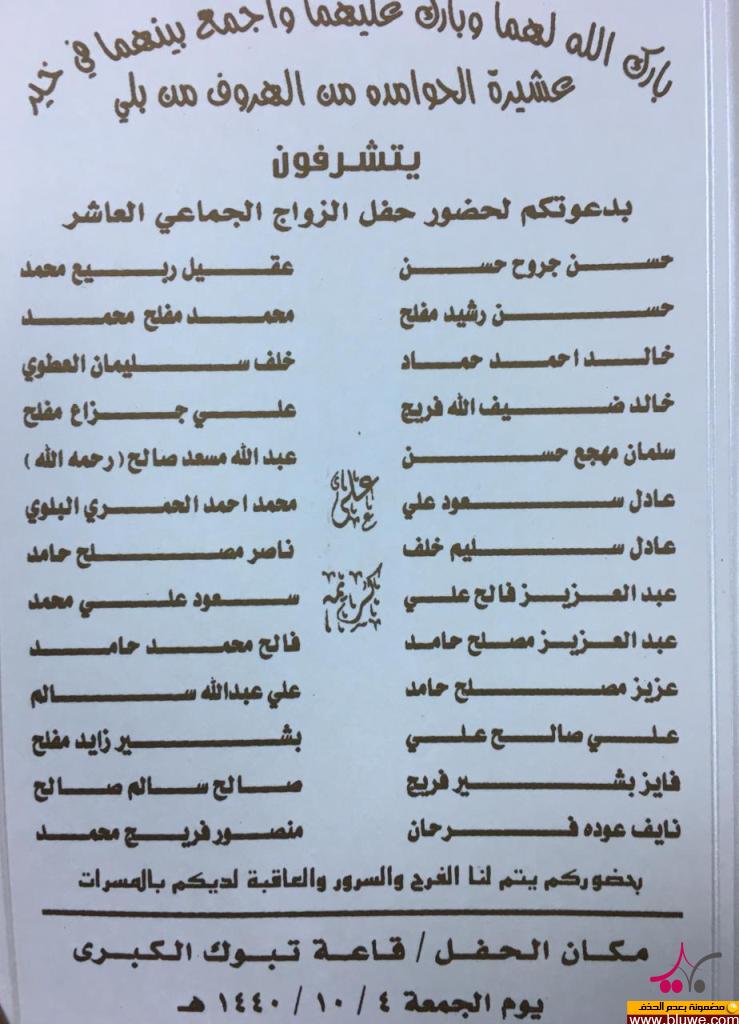 بارك الله لهما وبارك عليهما واجمع بينهما في خير
عشيرة الحوامده من الهروف من بلي
يتشرفون
بدعوتكم لحضور حفل الزواج الجماعي العاشر
حسن جروح حسن عقيل ربيع محمد
حسن رشيد مفلح محمد مفلح محمد
خالد احمد حماد خلف سليمان العطوي
خالد ضيف الله فريج علي جزاع مفلح
سلمان مهجع حسن عبد الله مسعد صالح (رحمه الله)
عادل سعود علي على محمد احمد الحمري البلوي
عادل سليم خلف ناصر مصلح حامد
عبد العزيز فالح علي كريمة سعود علي محمد
عبد العزيز مصلح حامد فالح محمد حامد
عزيز مصلح حامد علي عبدالله سالم
علي صالح علي بشير زايد مفلح
فايز بشير فريج صالح سالم صالح
نايف عوده فرحان منصور فريج محمد
بحضوركم يتم لنا الفرح والسرور والعاقبة لديكم بالمسرات
مكان الحفل / قاعة تبوك الكبرى
يوم الجمعة ٤ / ١٠ / ١٤٤٠ هـ
بلي
مضمونة بعدم الحذف
www.bluwe.com